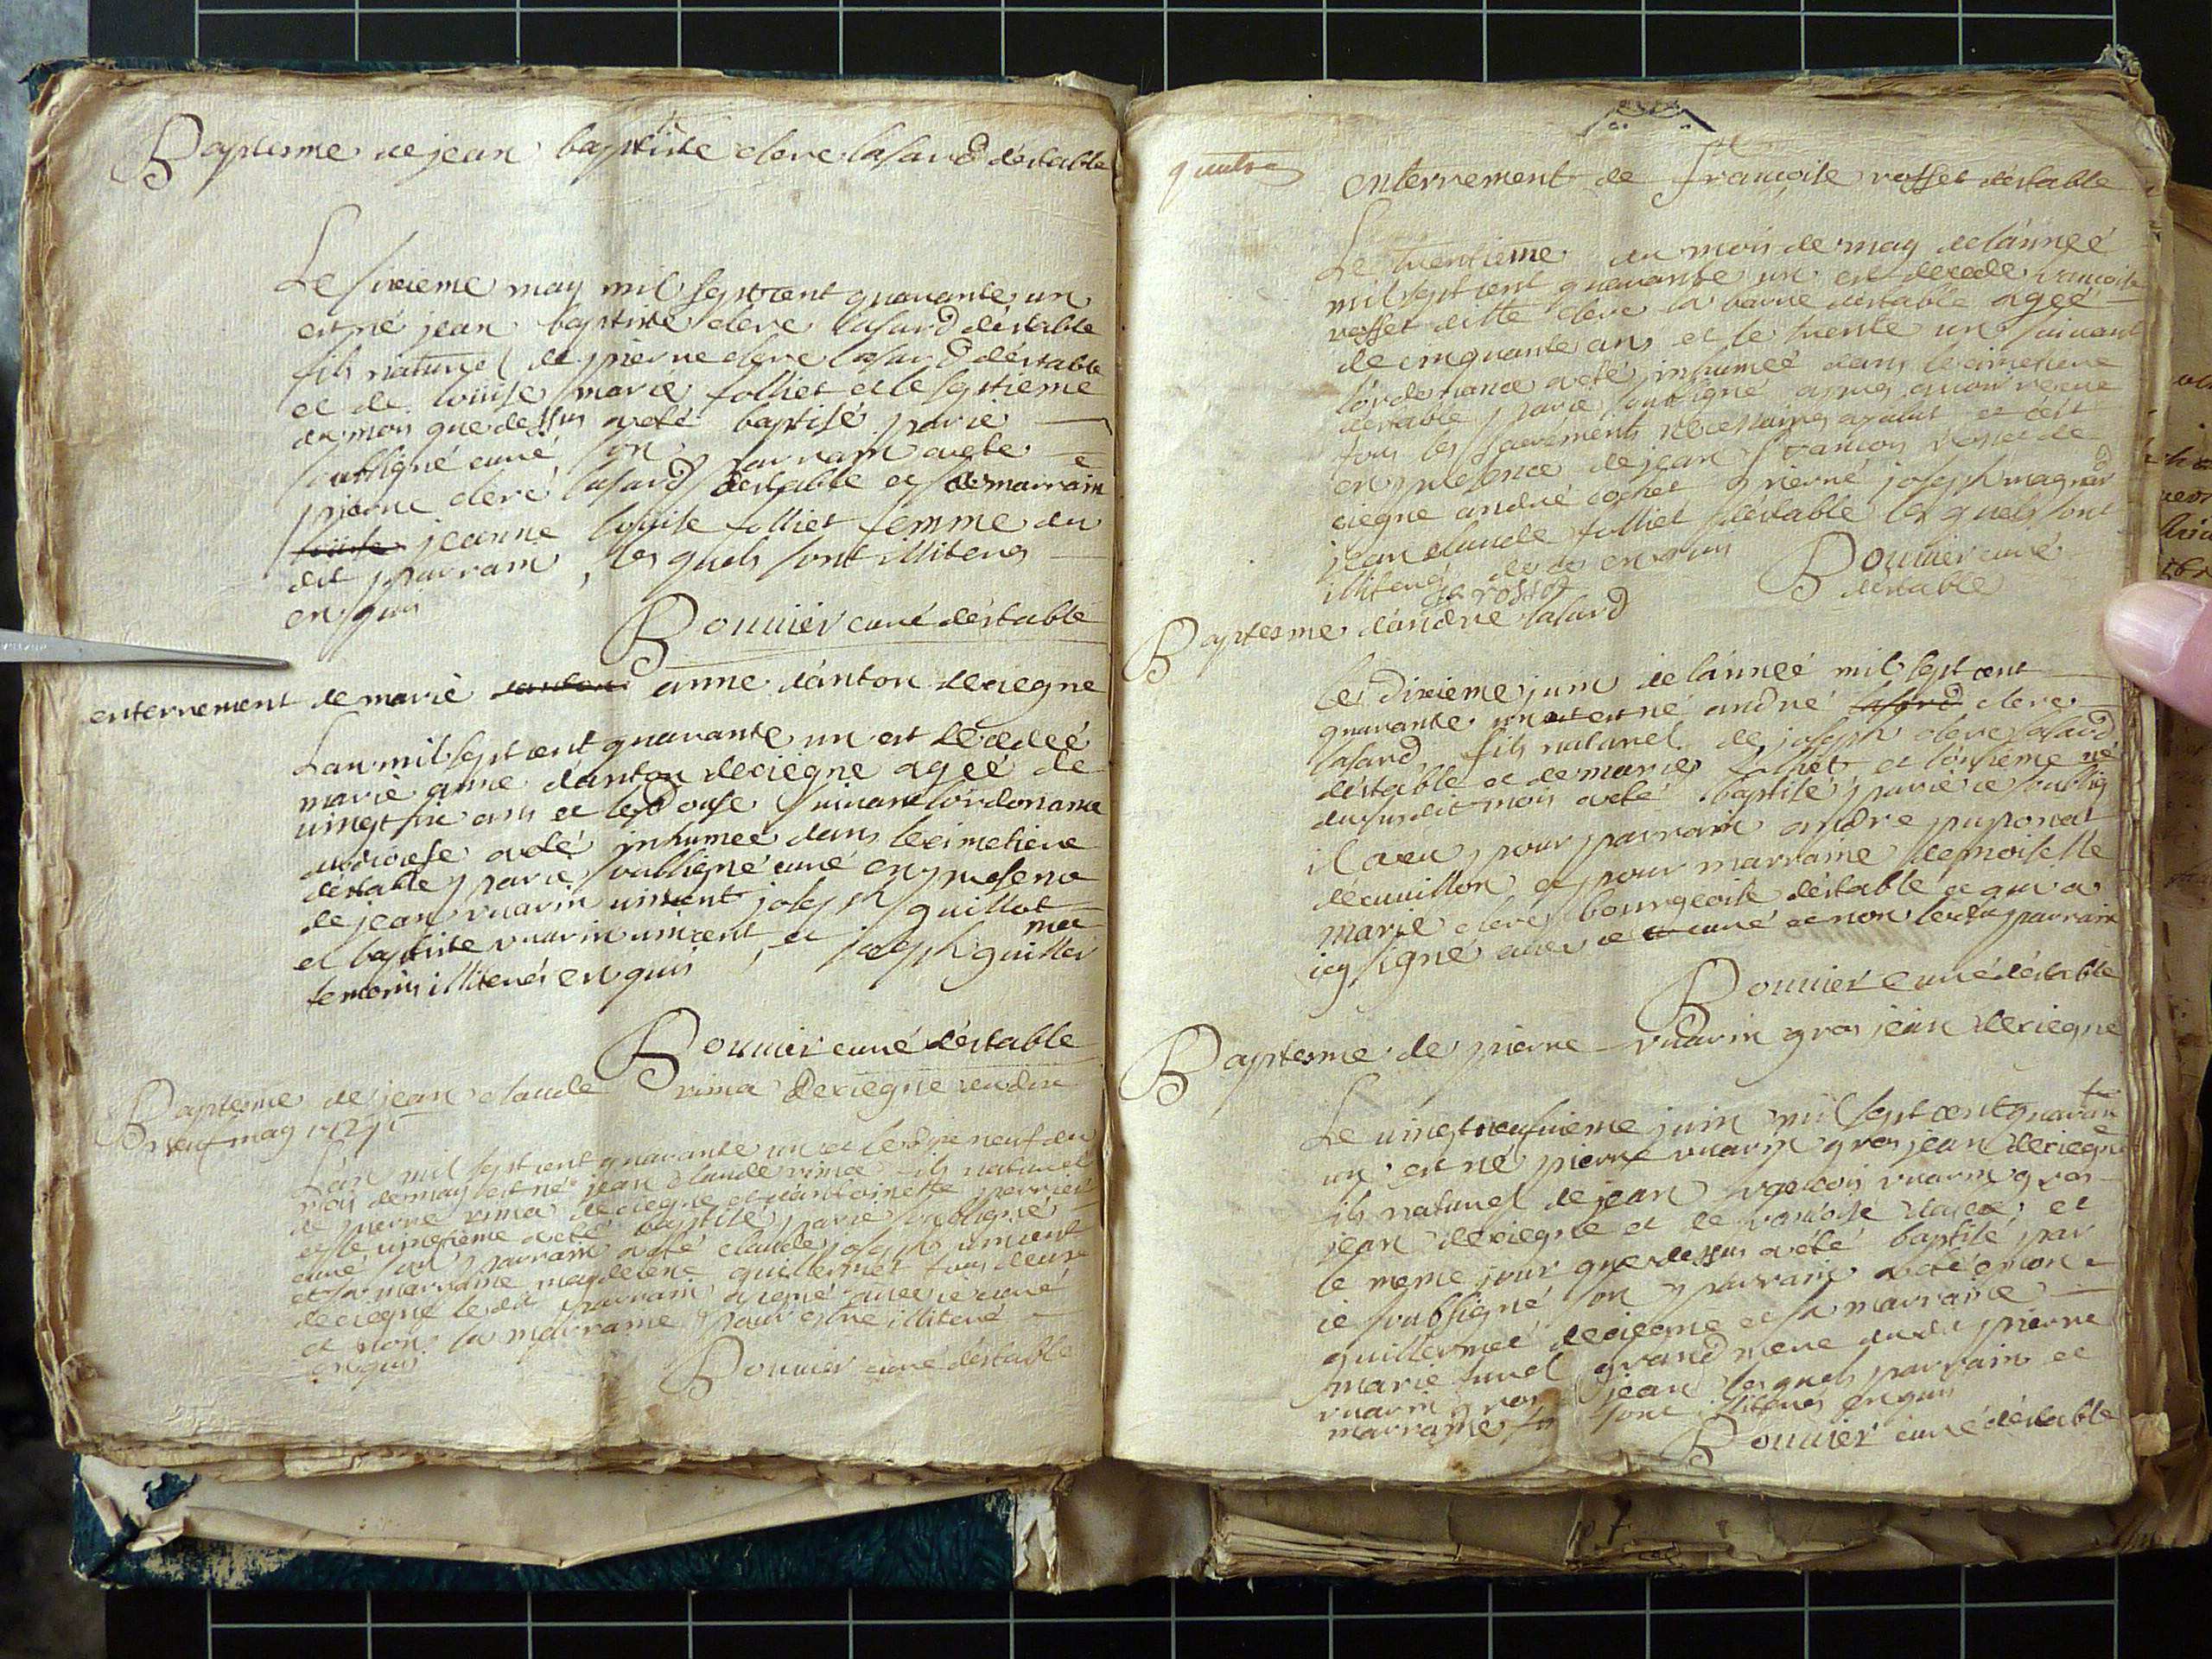 Baptesme de jean baptiste clerc lasard déstable
Le sixieme may mil sept cent quarante un
est né jean baptiste clerc lasard déstable
fils naturel de pierre clerc lasard déstable
et de louise marie folliet et le septieme
du mois que dessus a eté baptisé par ie
soussigné curé son parrain a eté
pierre clerc lasard déstable et sa marraine
jeanne louise folliet femme du
dit parrain, les quels sont illiteres
enquis
Bouvier curé déstable
enterrement de marie anne danton deciegne
Lan mil sept cent quarante un est décedeé
marie anne danton deciegne ageé de
vingt six ans et le douse suivant lordonance
du diocese a eté inhumeé dans le cimetiere
déstable par ie soussigné curé en presence
de jean vuarin vincent joseph guillot
et baptiste vuarin vincent, et joseph guiller
mee
temoins illiterés enquis
Bouvier curé déstable
Baptesme de jean claude rima deciegne du dix
neuf may 1741
Lan mil sept cent quarante un et le dix neuf du
mois de may est né jean claude rima fils naturel
de pierre rima deciegne et dantoinette perrier
et le vingtieme a eté baptisé par ie soussigné
curé son parrain a eté claude joseph vincent
et sa marraine magdelene guillermet tous deux
deciegne le dit parrain a signé avec ie curé
et non la marraine pour estre illiteré
enquis
Bouvier curé déstable
quatre
enterrement de françoise rosset déstable
Le trentieme du mois de may de lanneé
mil sept cent quarante un est decedé francoise
rosset ditte clerc la déstable ageé
de cinquante ans et le trente un suivant
lordonance a eté inhumeé dans le cimetiere
déstable par ie soussigné apres avoir receue
tous les sacréments necessaires et cést
en presence de jean francois rosset de
ciegne andré cochet pierre joseph magnin
jean claude folliet déstable les quels sont
illiterés de ce enquis
Bouvier curé
déstable
Baptesme dandré lasard
Le dixieme juin de lanneé mil sept cent
quarante un est né andré clerc
lasard, fils naturel de joseph clerc lasard
déstable et de marie et lonsieme
du susdit mois a eté baptisé par ie soussigné
il a eu pour parrain andre puponat
decuillon et pour marraine demoiselle
marie clerc bourgeoise déstable et qui a
icy signé avec ie curé et non le dit parrain
Bouvier curé déstable
Baptesme de pierre vuarin gros jean deciegne
Le vingt neufvieme juin mil sept cent quarante
un est né pierre vuarin gros jean deciegne
fils naturel de jean francois vuarin gros
jean deciegne et de francoise et
le meme jour que dessus a eté baptisé par
ie soussigné son parrain a eté
guillermet deciegne et sa marraine
marie grand mere dudit pierre
vuarin gros jean les quels parrain et
marraine sont illiterés enquis
Bouvier curé déstable